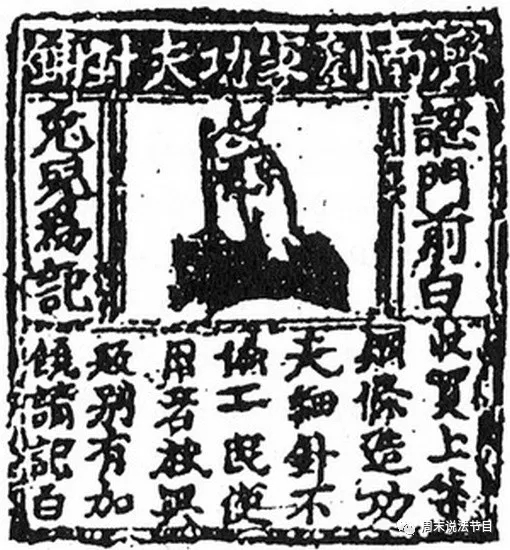 濟南劉家功夫針鋪
認門前白
兔兒爲記
收買上等
鋼條造功
夫細針不
偷工
用若被興
販別有加
饒請記白
周末说法节目